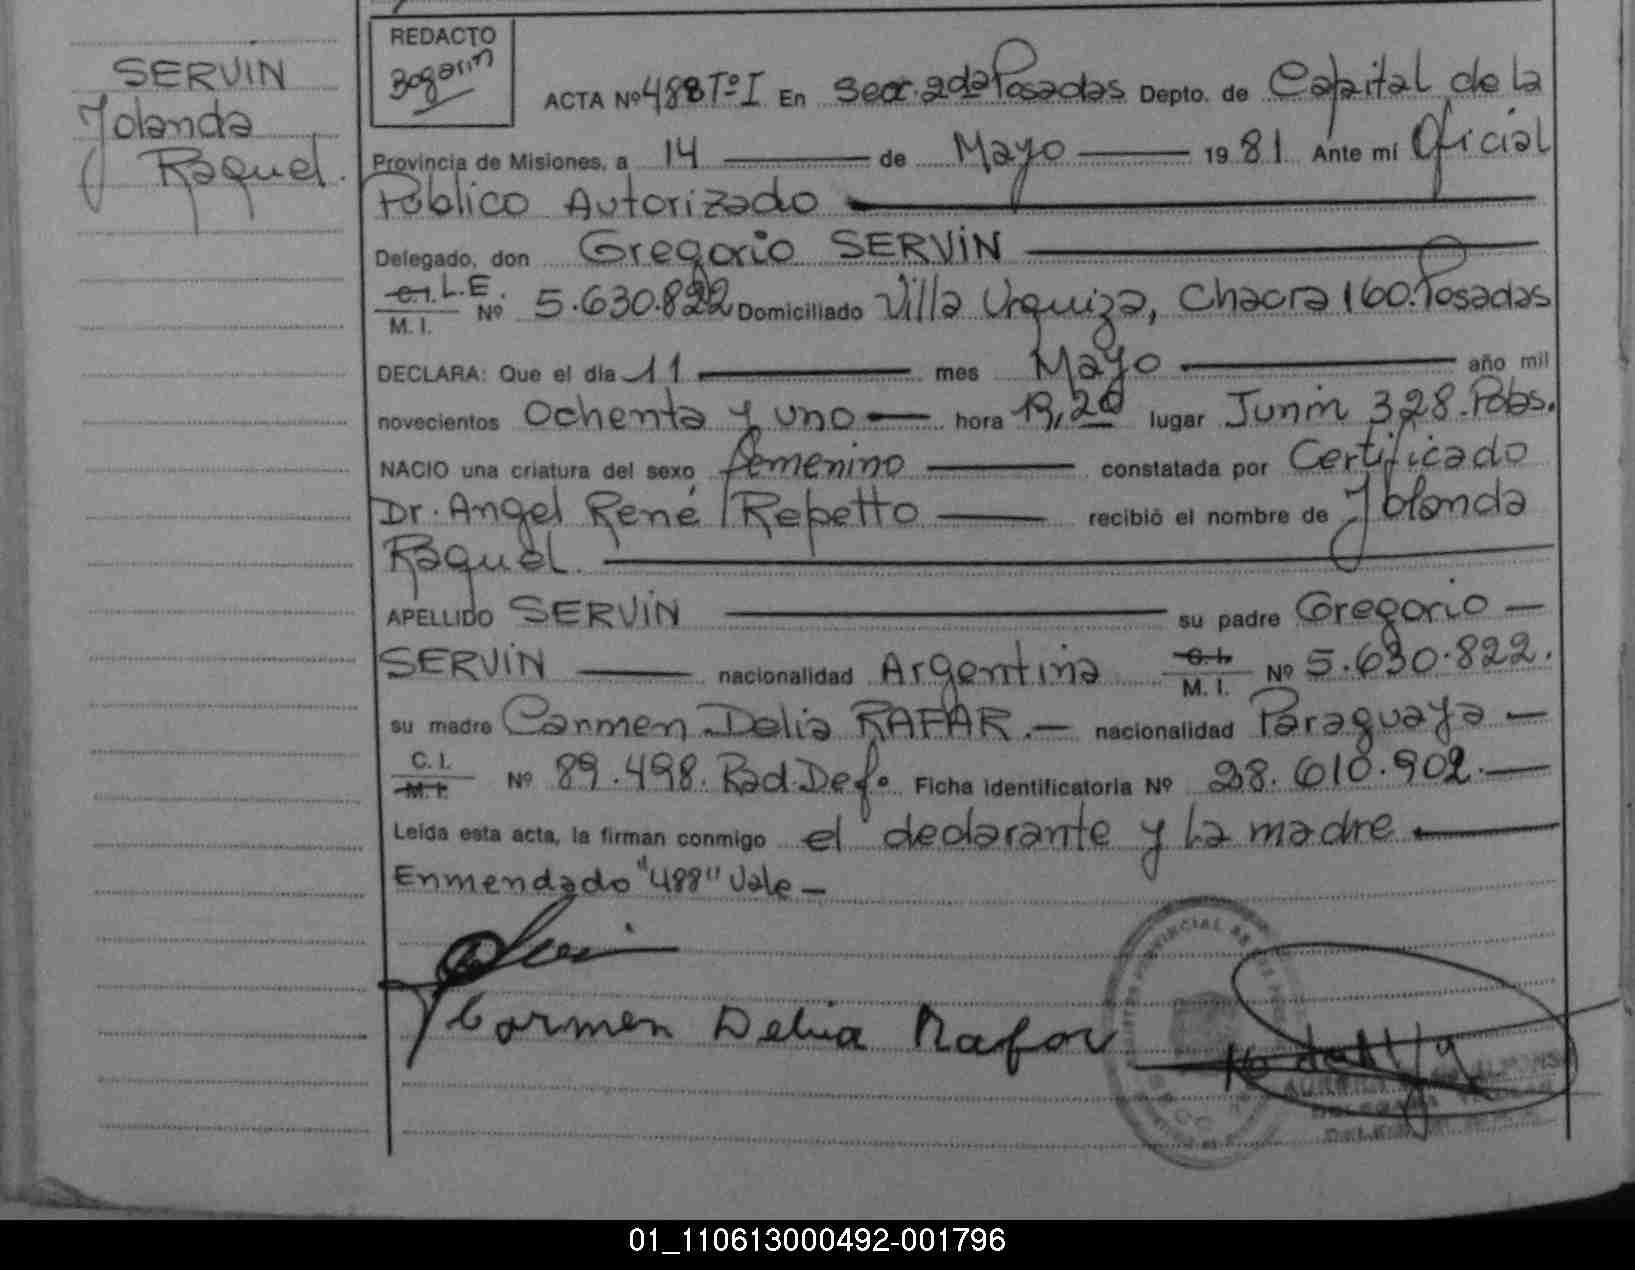 SERVIN
Yolanda
Raquel.
REDACTO
Bogarin
ACTA Nº 488 Tº I En Secc. 2da Posadas Depto. de Capital de la
Provincia de Misiones, a 14 de Mayo 1981 Ante mí Oficial
Público Autorizado
Delegado, don Gregorio SERVIN
C.I. L.E. M. I. Nº 5.630.822 Domiciliado Villa Urquiza, Chacra 160. Posadas
DECLARA: Que el día 11 mes Mayo año mil
novecientos Ochenta y uno hora 19,20 lugar Junin 328. Pdas.
NACIO una criatura del sexo femenino constatada por Certificado
Dr. Angel René Repetto recibió el nombre de Yolanda
Raquel.
APELLIDO SERVIN su padre Gregorio
SERVIN nacionalidad Argentina C.I. M. I. Nº 5.630.822.
su madre Carmen Delia RAFAR.- nacionalidad Paraguaya
C. I. M. I. Nº 89.498. Rad. Def. Ficha identificatoria Nº 28.610.902.
Leída esta acta, la firman conmigo el declarante y la madre
Enmendado "488" Vale -
Carmen Delia Rafar
01_110613000492-001796